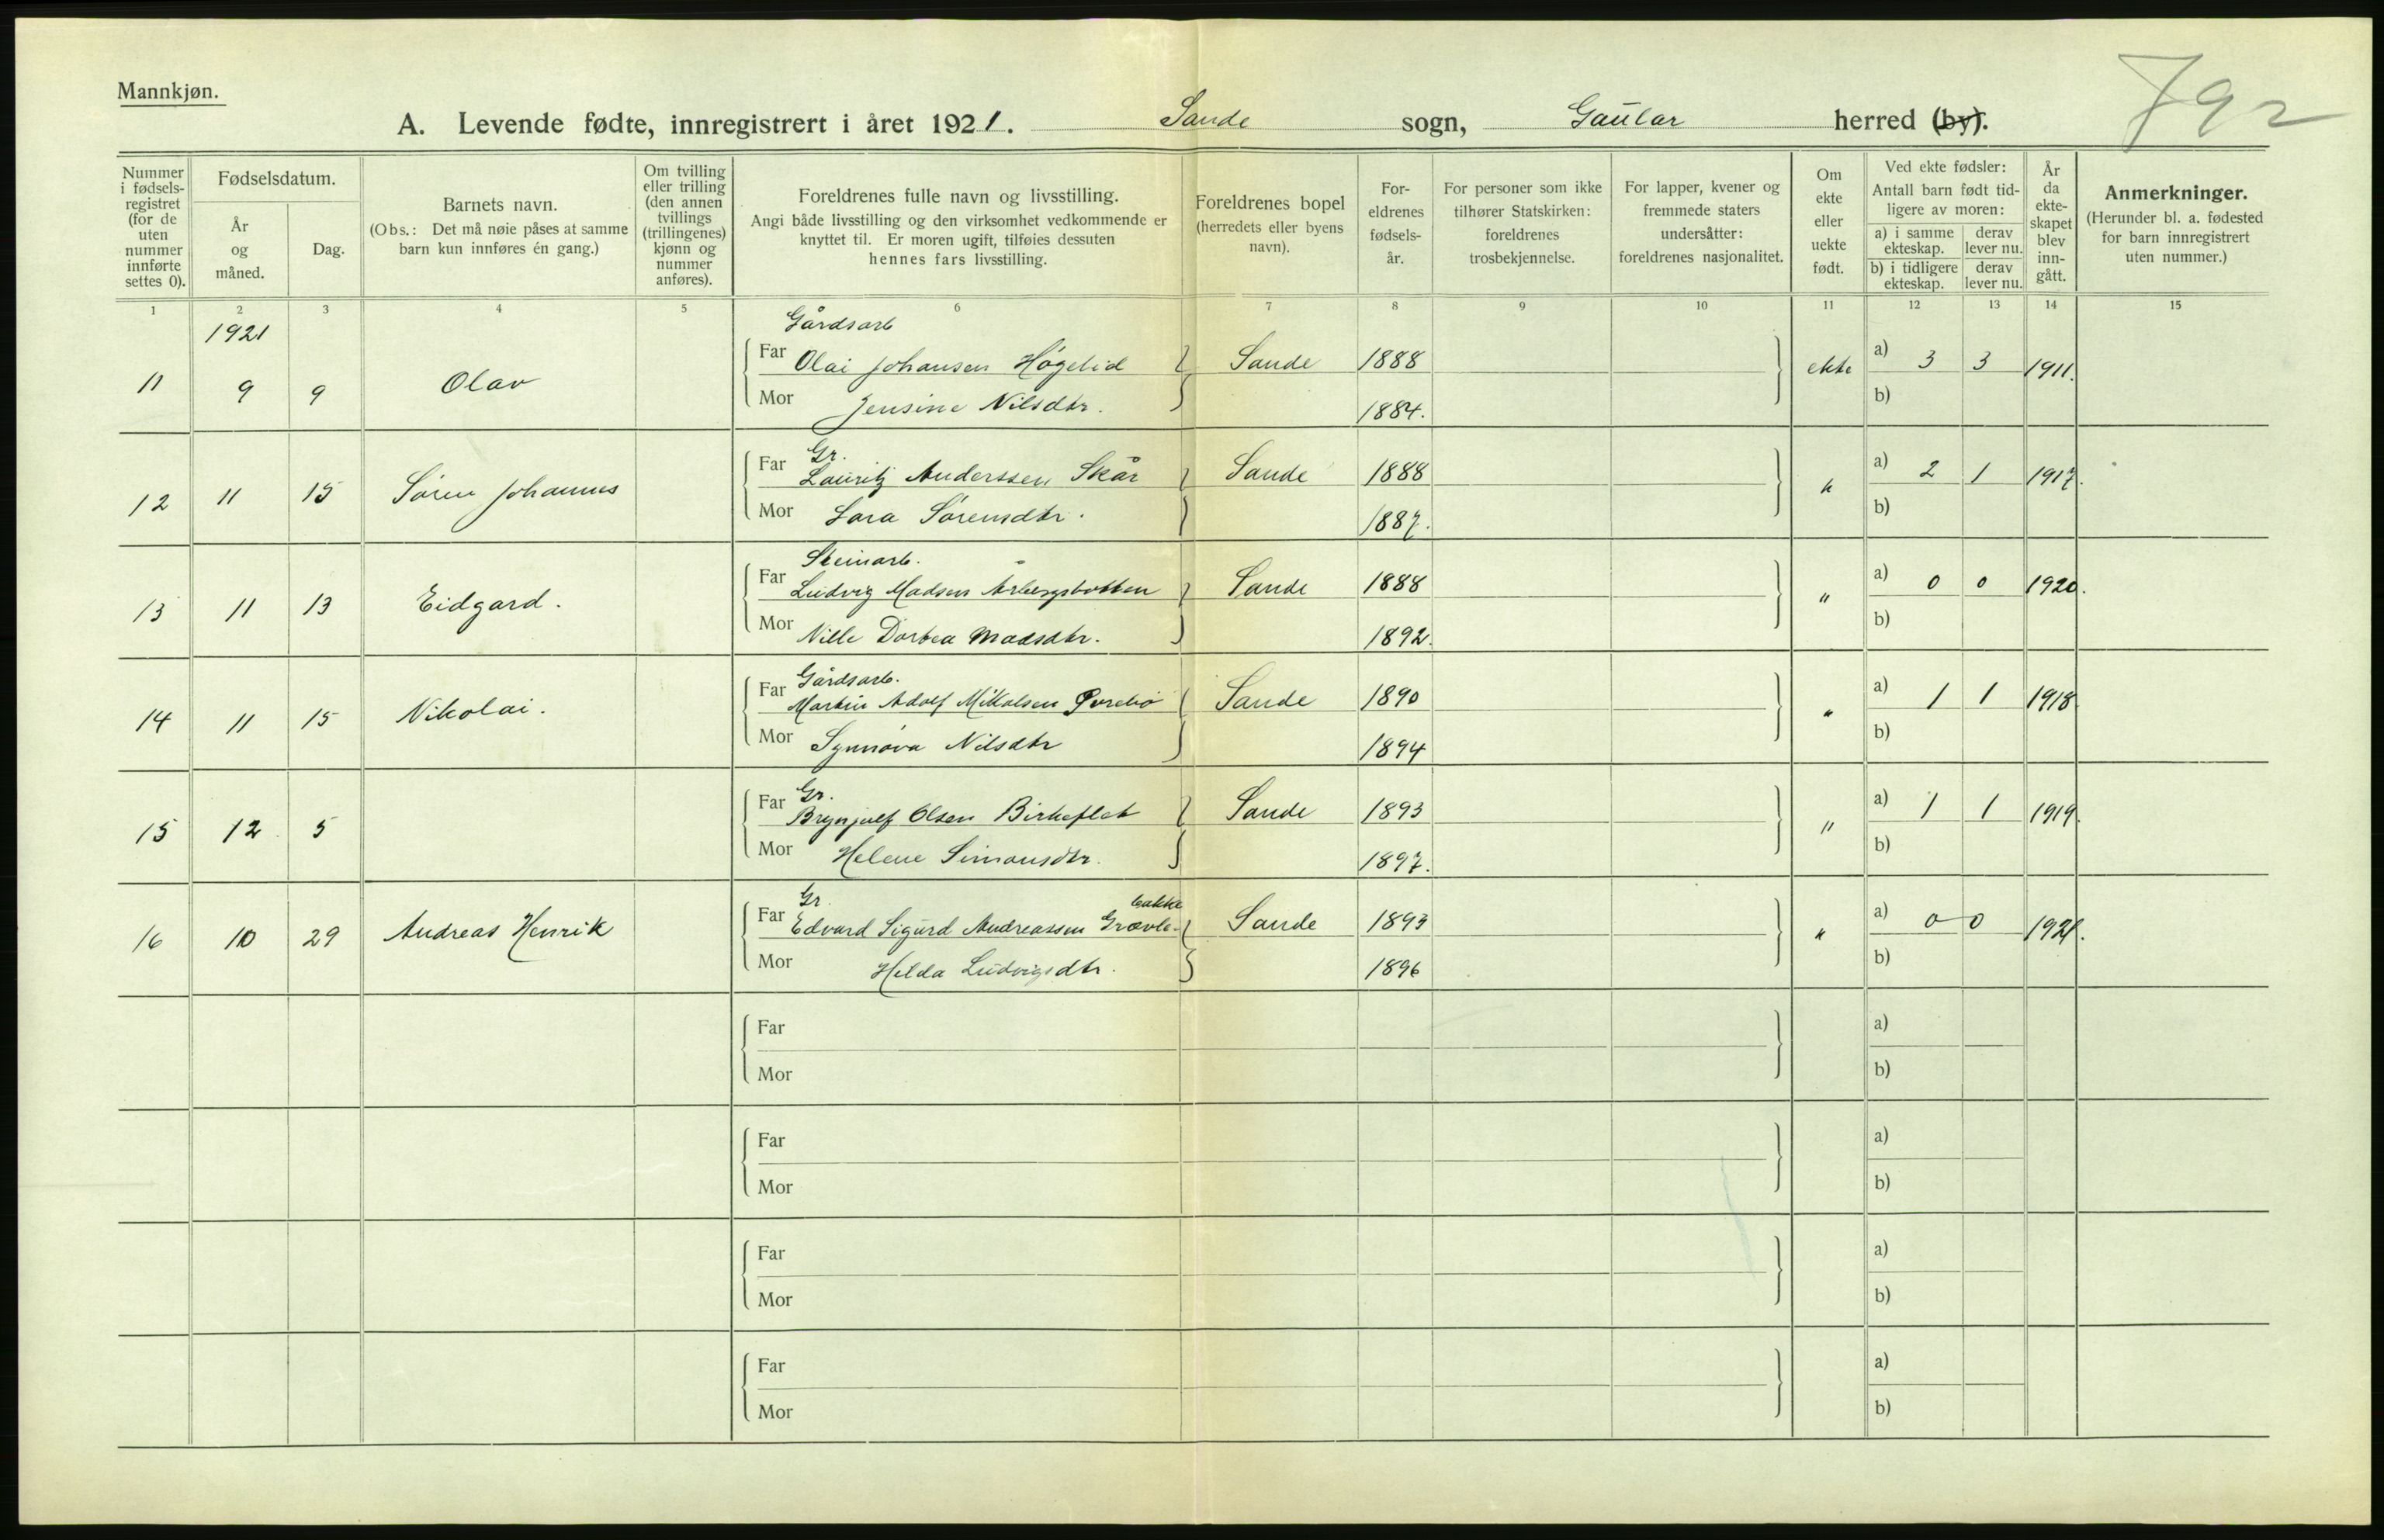 792
Mannkjøn.
A. Levende fødte, innregistrert i året 1921. Sande sogn, Gaular herred (by).
Nummer i fødsels-registret (for de uten nummer innførte settes 0).
Fødselsdatum.
År og måned.
Dag.
Barnets navn.
(Obs.: Det må nøie påses at samme barn kun innføres én gang.)
Om tvilling eller trilling (den annen tvillings (trillingenes) kjønn og nummer anføres).
Foreldrenes fulle navn og livsstilling.
Angi både livsstilling og den virksomhet vedkommende er knyttet til. Er moren ugift, tilføies dessuten hennes fars livsstilling.
Foreldrenes bopel (herredets eller byens navn).
For-eldrenes fødsels-år.
For personer som ikke tilhører Statskirken: foreldrenes trosbekjennelse.
For lapper, kvener og fremmede staters undersåtter: foreldrenes nasjonalitet.
Om ekte eller uekte født.
Ved ekte fødsler:
Antall barn født tid-ligere av moren:
a) i samme ekteskap. derav lever nu.
b) i tidligere ekteskap. derav lever nu.
År da ekte-skapet blev inn-gått.
Anmerkninger.
(Herunder bl. a. fødested for barn innregistrert uten nummer.)
1 2 3 4 5 6 7 8 9 10 11 12 13 14 15
1921
Gårdsarb
11 9 9 Olav Far Olai Johansen Høgelid Sande 1888 ekte a) 3 3 1911.
Mor Jensine Nilsdtr. 1884. b)
Gr.
12 11 15 Søren Johannes Far Lauritz Anderssen Skår Sande 1888 " a) 2 1 1917.
Mor Lara Sørensdtr. 1887. b)
Steinarb.
13 11 13 Eidgard. Far Ludvig Madsen Årbergsbotten Sande 1888 " a) 0 0 1920.
Mor Nille Dortea Madsdtr. 1892. b)
Gårdsarb.
14 11 15 Nikolai. Far Martin Adolf Mikalsen Sande 1890 " a) 1 1 1918
Mor Synnøva Nilsdtr 1894 b)
Gr.
15 12 5 Far Brynjulf Olsen Birkeflet Sande 1893 " a) 1 1 1919.
Mor Helene Simonsdtr. 1897. b)
Gr. bakke
16 10 29 Andreas Henrik Far Edvard Sigurd Andreassen Grøvle- Sande 1893 " a) 0 0 1921.
Mor Helda Ludvigsdtr. 1896 b)
Far a)
Mor b)
Far a)
Mor b)
Far a)
Mor b)
Far a)
Mor b)